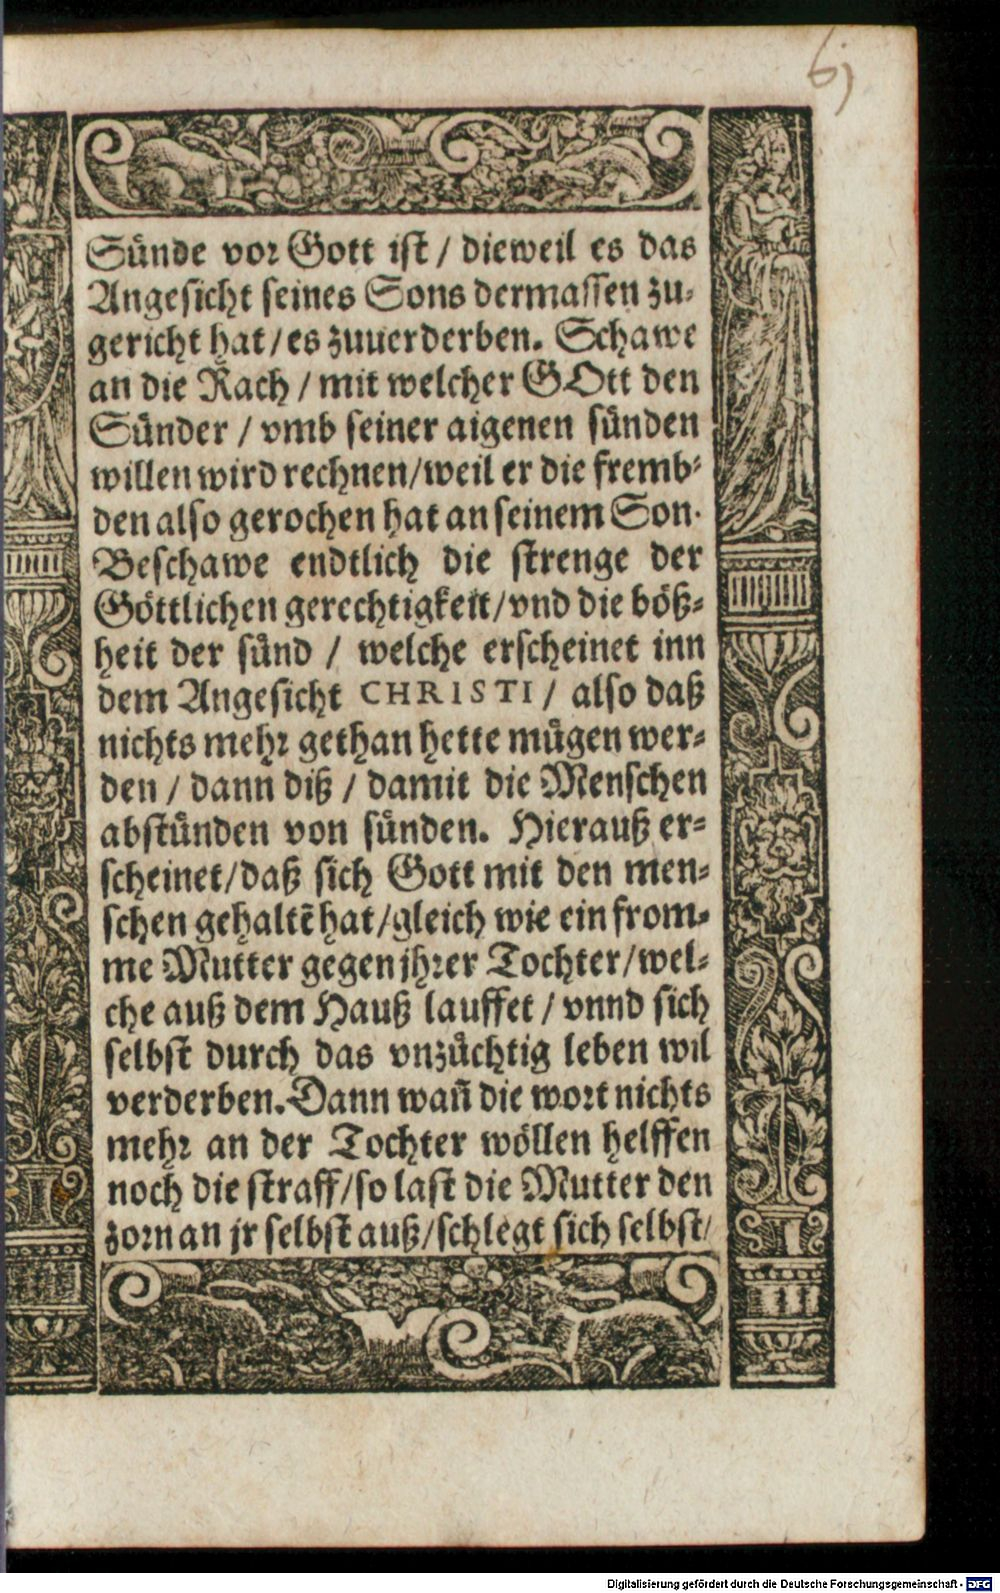 6j
Sünde vor Gott ist / dieweil es das
Angesicht seines Sons dermassen zu-
gericht hat / es zuuerderben. Schawe
an die Rach / mit welcher GOtt den
Sünder / vmb seiner aigenen sünden
willen wird rechnen / weil er die fremb-
den also gerochen hat an seinem Son.
Beschawe endtlich die strenge der
Göttlichen gerechtigkeit / vnd die böß-
heit der sünd / welche erscheinet inn
dem Angesicht CHRISTI / also daß
nichts mehr gethan hette mügen wer-
den / dann diß / damit die Menschen
abstünden von sünden. Hierauß er-
scheinet / daß sich Gott mit den men-
schen gehaltẽ hat / gleich wie ein from-
me Mutter gegen jhrer Tochter / wel-
che auß dem Hauß lauffet / vnnd sich
selbst durch das vnzüchtig leben wil
verderben. Dann wañ die wort nichts
mehr an der Tochter wöllen helffen
noch die straff / so last die Mutter den
zorn an jr selbst auß / schlegt sich selbst /
Digitalisierung gefördert durch die Deutsche Forschungsgemeinschaft - DFG